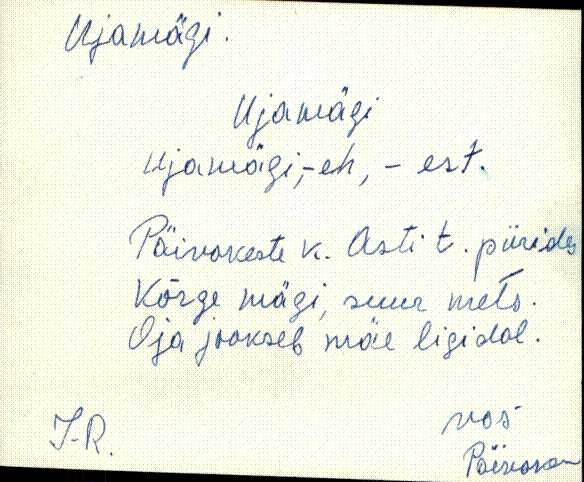 Ujamägi.
Ujamägi
Ujamägi, -eh, - est.
Päivakeste k. Asti t. piirides
Kõrge mägi, suur mets.
Oja jookseb mäe ligidal.
J-R. Vas